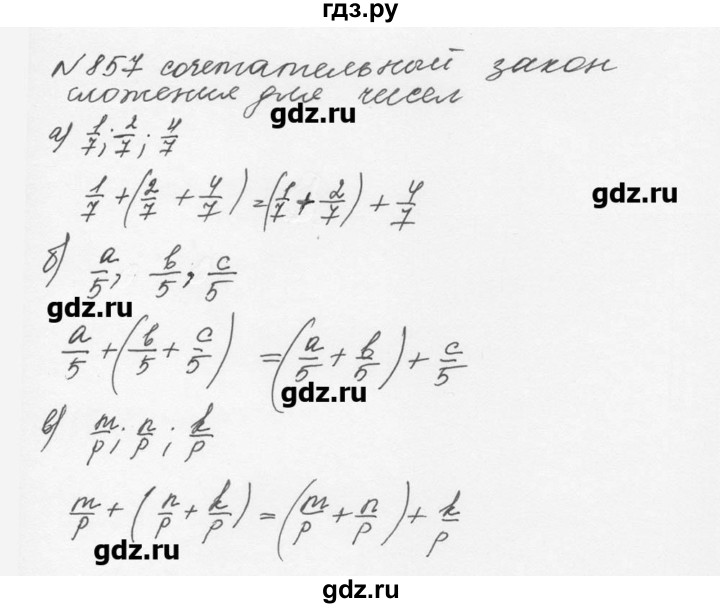 гдз.ру
№857 сочетательный закон
сложения для чисел
gdz.ru
а) 1/7; 2/7; 4/7
1/7 + (2/7 + 4/7) = (1/7 + 2/7) + 4/7
gdz.ru
б) a/5, b/5, c/5
gdz.ru
a/5 + (b/5 + c/5) = (a/5 + b/5) + c/5
gdz.ru
в) m/p; n/p; k/p
m/p + (n/p + k/p) = (m/p + n/p) + k/p
gdz.ru
gdz.ru